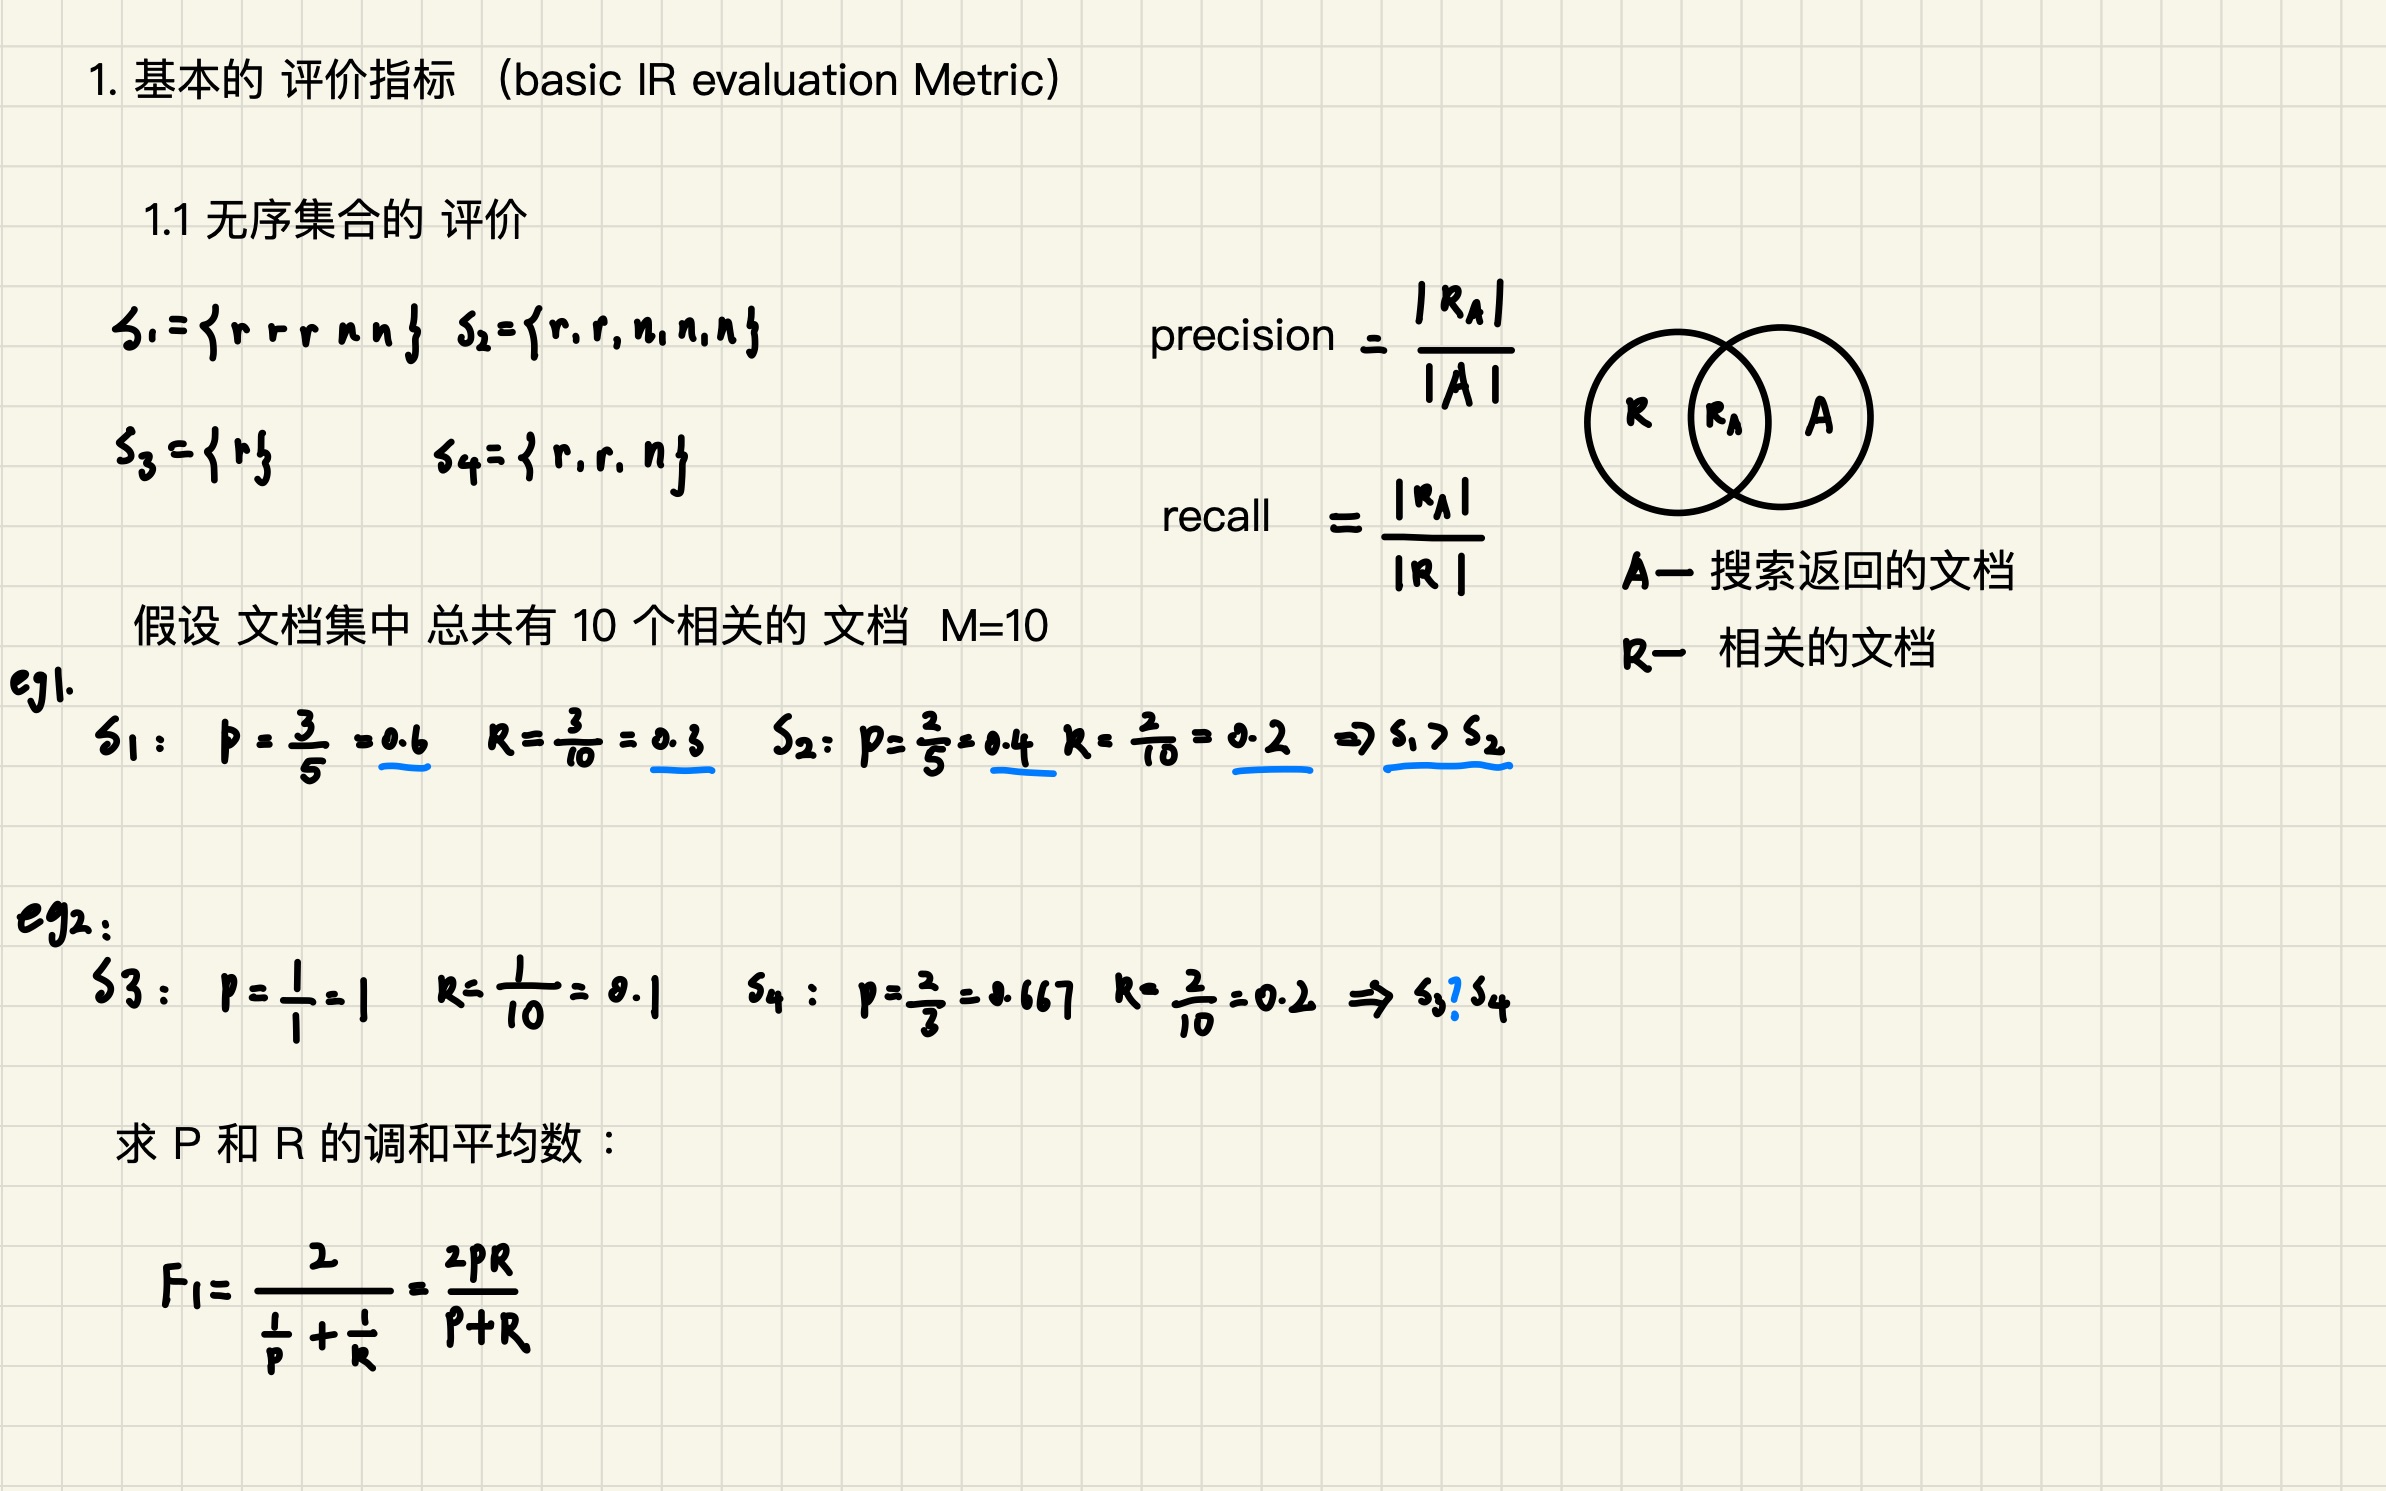 1. 基本的 评价指标 （basic IR evaluation Metric）
1.1 无序集合的 评价
S₁={r r r n n} S₂={r, r, n, n, n}
S₃={r} S₄={r, r, n}
precision = |R_A| / |A|
recall = |R_A| / |R|
R R_A A
A— 搜索返回的文档
R— 相关的文档
假设 文档集中 总共有 10 个相关的 文档 M=10
eg1.
S₁: P=3/5=0.6 R=3/10=0.3 S₂: P=2/5=0.4 R=2/10=0.2 ⇒ S₁>S₂
eg2:
S3: P=1/1=1 R=1/10=0.1 S₄: P=2/3=0.667 R=2/10=0.2 ⇒ S₃?S₄
求 P 和 R 的调和平均数：
F₁= 2 / (1/P + 1/R) = 2PR / (P+R)